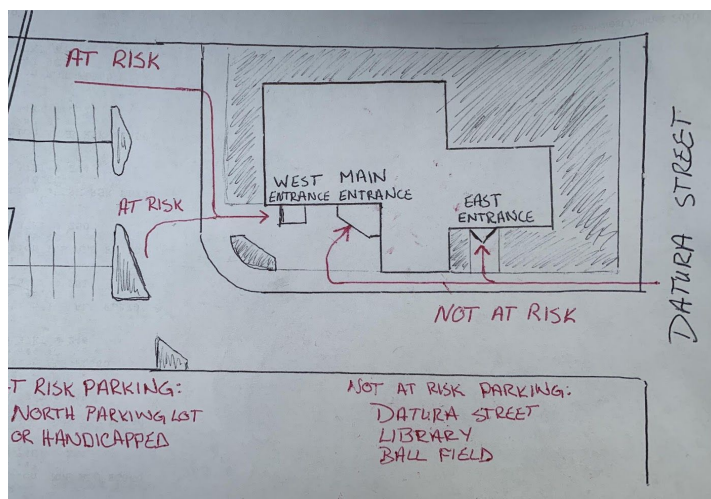 AT RISK
WEST
ENTRANCE
MAIN
ENTRANCE
AT RISK
EAST
ENTRANCE
DATURA STREET
NOT AT RISK
T RISK PARKING:
NORTH PARKING LOT
OR HANDICAPPED
NOT AT RISK PARKING:
DATURA STREET
LIBRARY
BALL FIELD